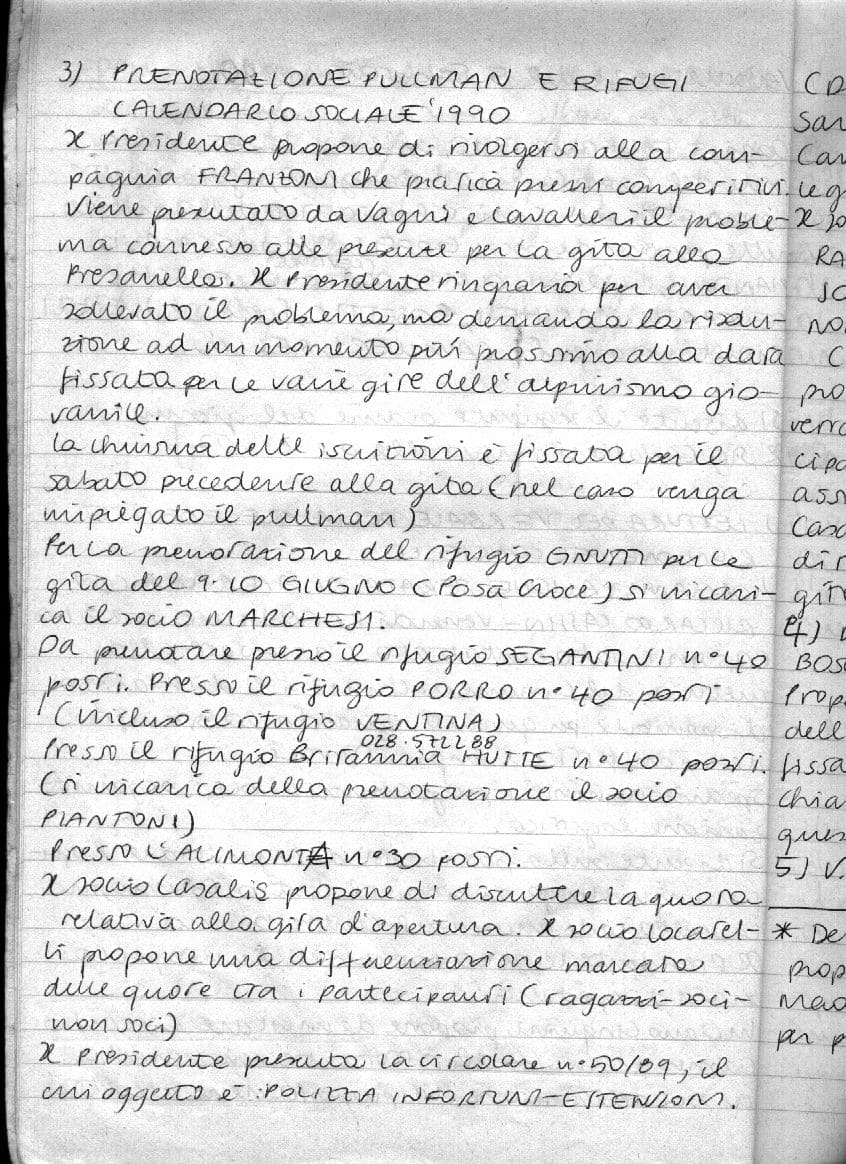 3) PRENOTAZIONE PULLMAN E RIFUGI
CALENDARIO SOCIALE '1990
Il Presidente propone di rivolgersi alla com-
pagnia FRANZONI che pratica prezzi competitivi.
Viene presentato da Vagni e Cavalleri il proble-
ma connesso alle presenze per la gita allo
Presanella. Il Presidente ringrazia per aver
sollevato il problema, ma demanda la risolu-
zione ad un momento più prossimo alla data
fissata per le varie gite dell'alpinismo gio-
vanile.
La chiusura delle iscrizioni è fissata per il
sabato precedente alla gita (nel caso venga
impiegato il pullman)
Per la prenotazione del rifugio GNUTTI per le
gita del 9.10 GIUGNO (POSA CROCE) si incari-
ca il socio MARCHESI.
Da prenotare presso il rifugio SEGANTINI n° 40
posti. Presso il rifugio PORRO n° 40 posti
(incluso il rifugio VENTINA)
028.572288
Presso il rifugio Britannia HUTTE n° 40 posti.
(si incarica della prenotazione il socio
PIANTONI)
Presso L'ALIMONTA n° 30 posti.
Il socio Casalis propone di discutere la quota
relativa alla gita d'apertura. Il socio Locatel-
li propone una differenziazione marcata
delle quote tra i partecipanti (ragazzi-soci-
non soci)
Il Presidente presenta la circolare n° 50/89, il
cui oggetto è: POLIZZA INFORTUNI-ESTENSIONI.
CD
San
Can
leg
Il so
RA
SO
NO
C
pro
verra
cipa
ass
Casa
dir
gita
4)
BOS
Prop
dell
fissa
chia
ques
5) V.
* De
prop
Mao
per p